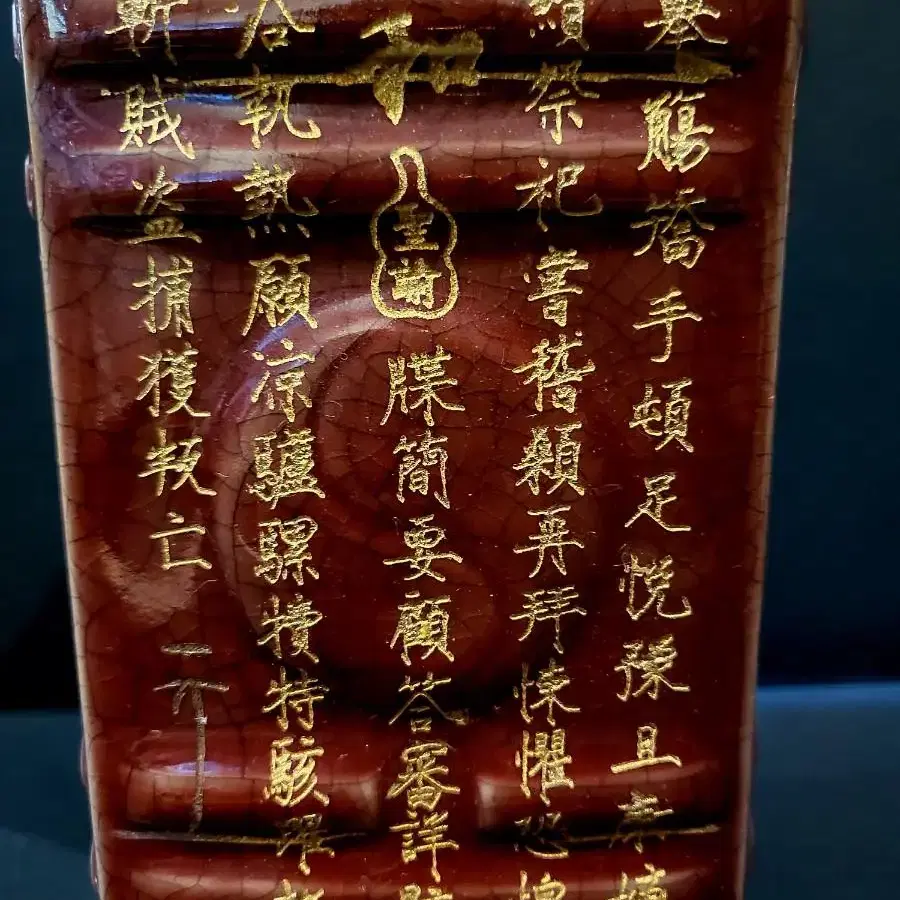 舉觴矯手頓足悅豫且康嫡
續祭祀嘗稽顙再拜悚懼恐惶
和
牒簡要顧答審詳骸
浴執熱願凉驢騾犢特駭躍超
斬賊盗捕獲叛亡